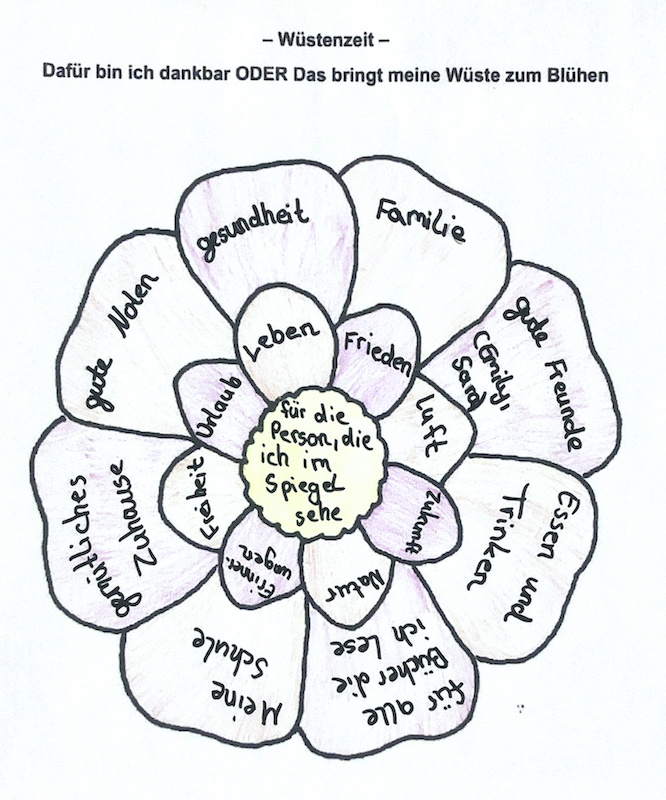 – Wüstenzeit –
Dafür bin ich dankbar ODER Das bringt meine Wüste zum Blühen
gesundheit
Familie
gute Freunde
(Emily,
Sara)
Essen und
Trinken
für alle
Bücher die
ich lese
Meine
Schule
gemütliches
Zuhause
gute Noten
Leben
Frieden
Luft
Zukunft
Natur
Erinner-
ungen
Freiheit
Urlaub
für die
Person, die
ich im
Spiegel
sehe